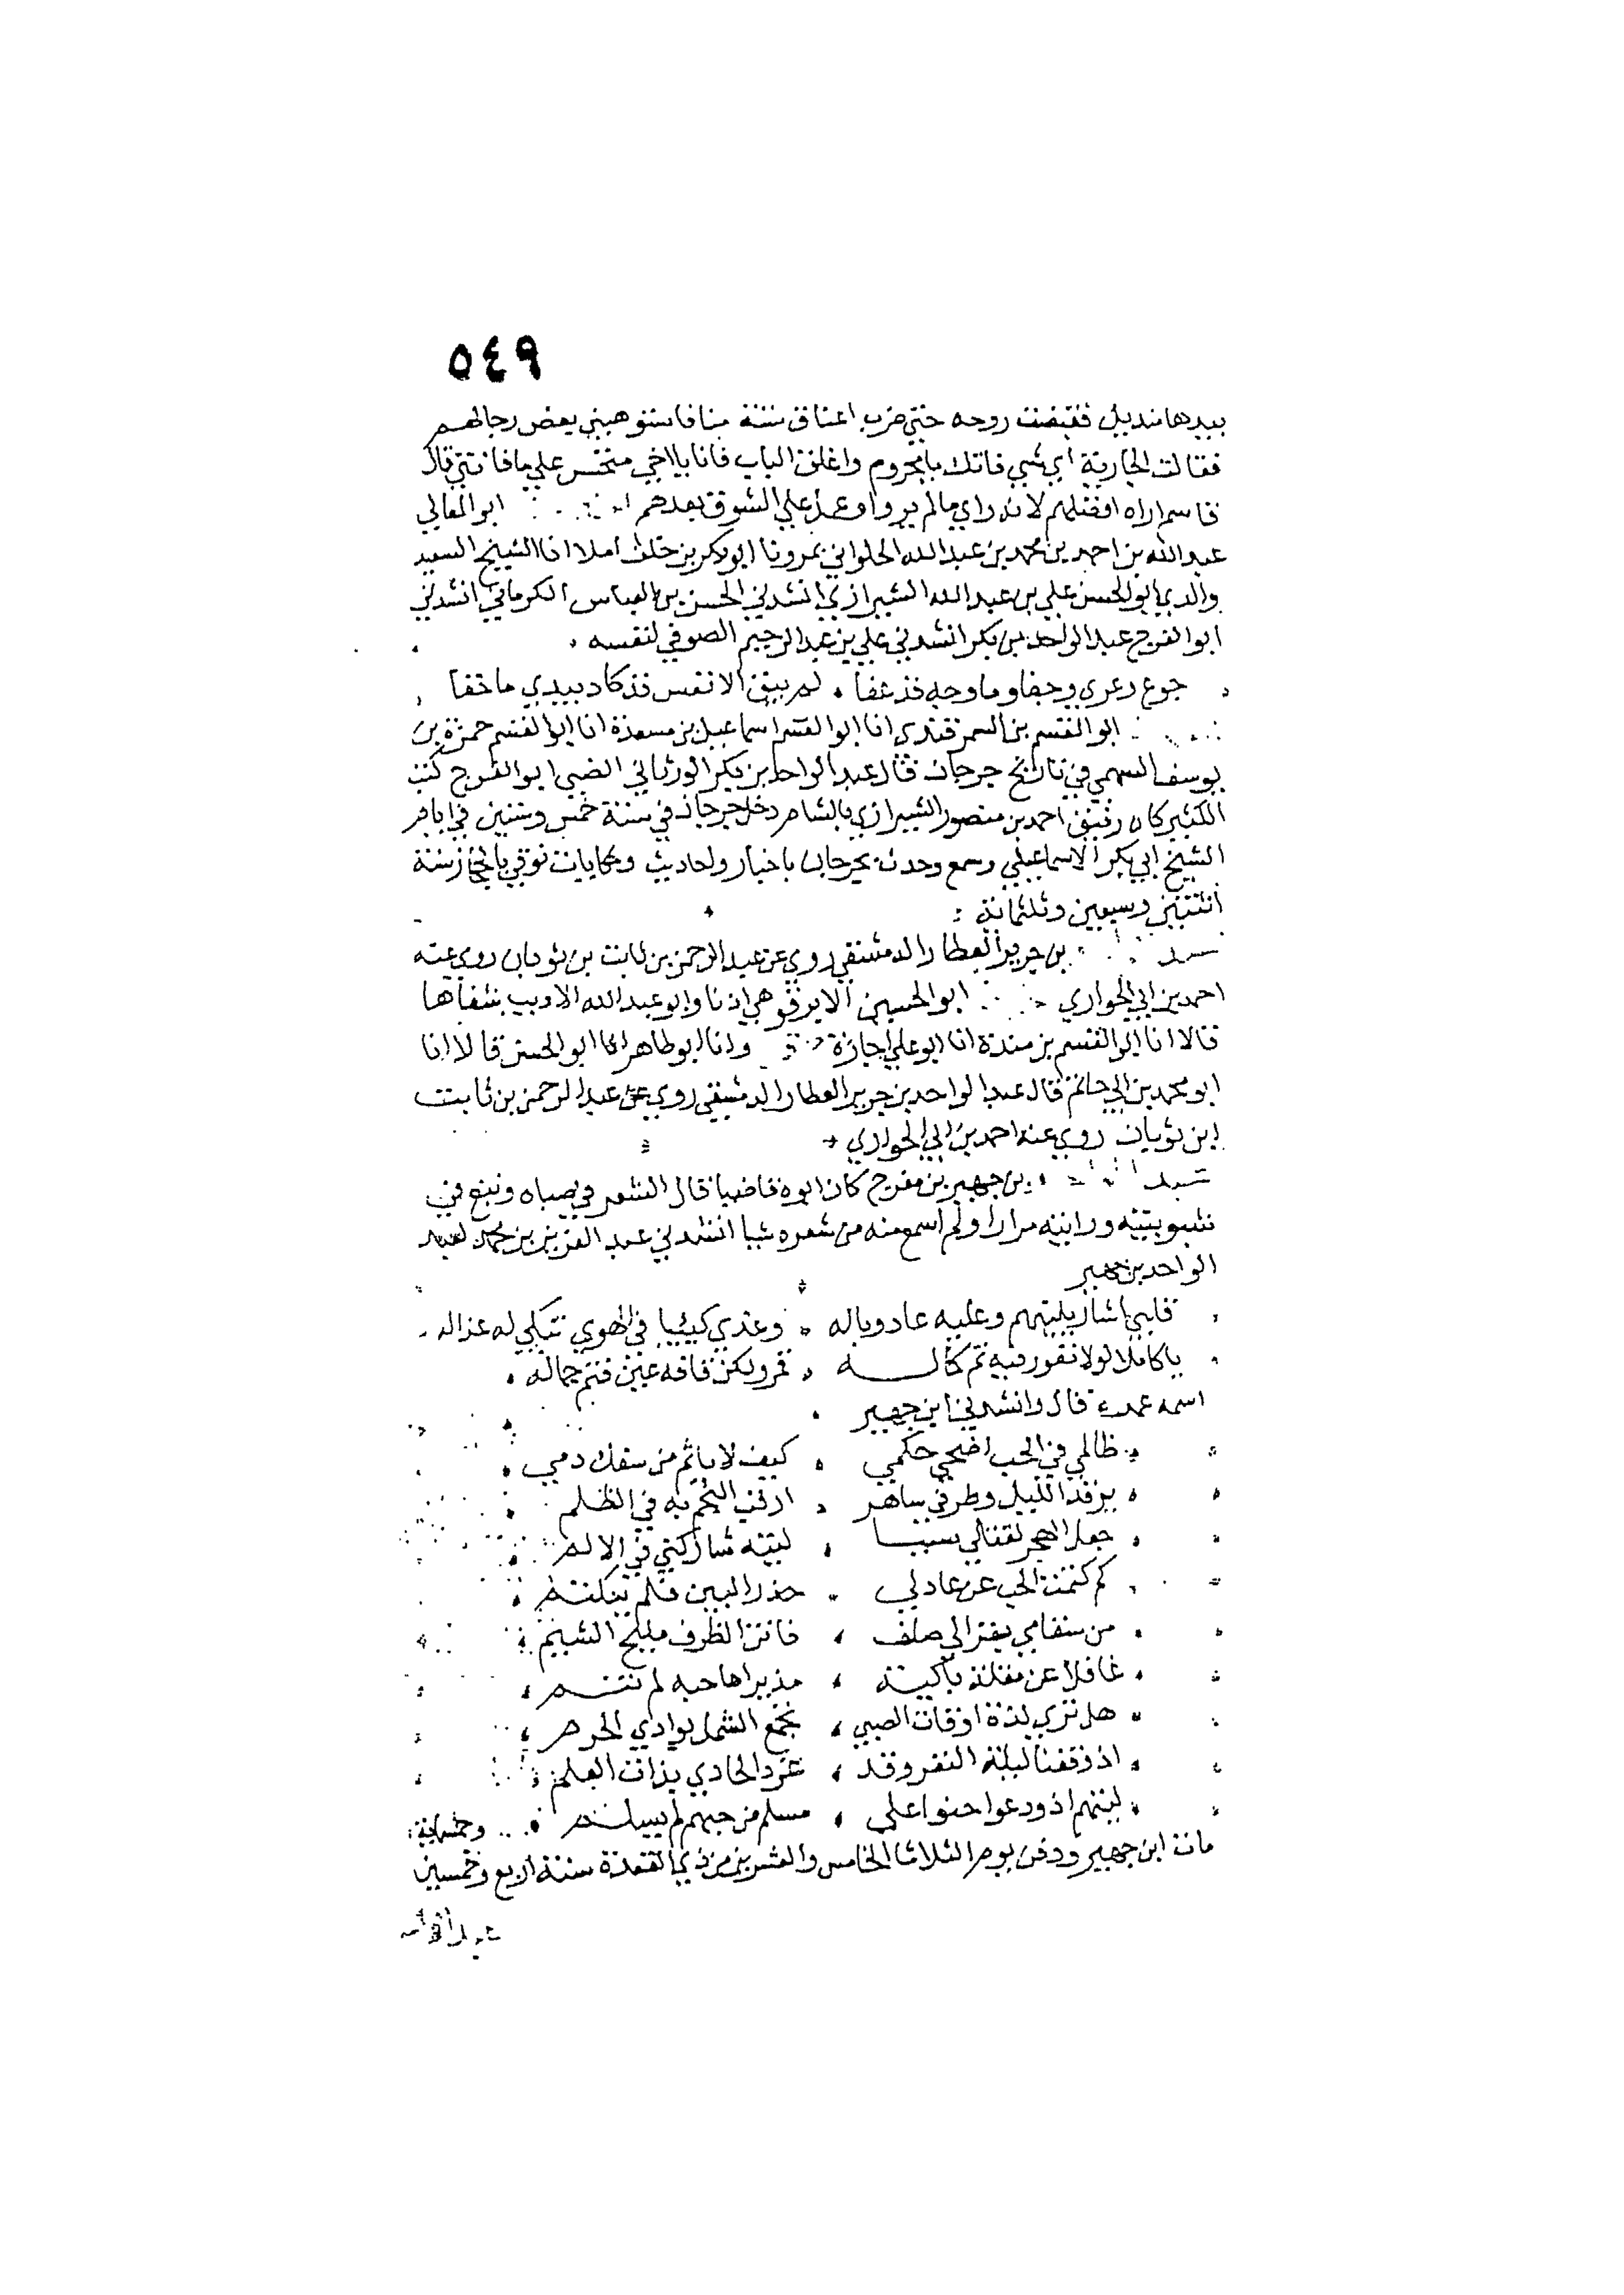 ٥٤٩
بيدها منديل فقبضت روحه حتى ضرب اعناق ستة منا فاستوهبني بعض رجالهم
فقالت الجارية اي شي فاتك يا محروم واغلقت الباب فانا يا اخي متحسر علي ما فاتني قال
قاسم اراه افضلهم لانه راي مالم يروا وعمل علي الشوق بعدهم ابو المعالي
عبد الله بن احمد بن محمد بن عبد الله الحلواني بمرو نا ابو بكر بن خلف املا انا الشيخ السعيد
والدي ابو الحسن علي بن عبد الله الشيرازي انشدني الحسن بن العباس الكرماني انشدني
ابو الفرج عبد الواحد بن بكر انشدني علي بن عبد الرحيم الصوفي لنفسه
جوع وعري وحفا وما وجه قد عفا لم يبق الا نفس قد كاد يبدي ما خفا
ابو القسم بن السمرقندي انا ابو القسم اسماعيل بن مسعدة انا ابو القسم حمزة بن
يوسف السهمي في تاريخ جرجان قال عبد الواحد بن بكر الورثاني الضبي ابو الفرج كتب
الكثير كان رفيق احمد بن منصور الشيرازي بالشام دخل جرجان في سنة خمس وستين في ايام
الشيخ ابي بكر الاسماعيلي وسمع وحدث بجرجان باخبار واحاديث وحكايات توفي بالحجاز سنة
اثنتين وسبعين وثلثمائة
بن جرير العطار الدمشقي روي عن عبد الرحمن بن ثابت بن ثوبان روي عنه
احمد بن ابي الحواري ابو الحسين الابرقوهي اذنا وابو عبد الله الاديب شفاها
قالا انا ابو القسم بن مندة انا ابو علي اجازة وانا ابو طاهر انا ابو الحسن قالا انا
ابو محمد بن ابي حاتم قال عبد الواحد بن جرير العطار الدمشقي روي عن عبد الرحمن بن ثابت
ابن ثوبان روي عنه احمد بن ابي الحواري
بن جهير بن مفرج كان ابوه قاضيا قال الشعر في صباه ونبغ في
شبوبيته ورايته مرارا ولم اسمع منه من شعره شيا انشدني عبد العزيز بن محمد لعبد
الواحد بن جهير
قلبي اشار ببينهم وعليه عاد وباله وغدي كييبا في الهوي تبكي له عذاله
يا كاملا لولا نفور فيه تم كماله قمر ولكن قافه عين فتم جماله
اسمه عمر قال وانشدني ابن جهير
ظالمي في الحب اضحي حكمي كيف لا ياثم من سفك دمي
يرقد الليل وطرفي ساهر ارقب النجم به في الظلم
جعل الهجر لقتلي سببا ليته شاركني في الالم
كم كتمت الحب عن عاذلي حذر البين فلم ينكتم
من سقامي يفتر الي صلف فاتن الظرف مليح الشيم
غافلا عن مقلة باكية مذ براها حبه لم تنم
هل تري لذة اوقات الصبي تجمع الشمل بوادي الحرم
اذ وقفنا ليلة النفر وقد غرد الحادي بذات العلم
ليتهم اذ ودعوا حنوا علي مسلم من حبهم لم يسلم وخمسماية
مات ابن جهير ودفن يوم الثلاثا الخامس والعشرين من ذي القعدة سنة اربع وخمسين